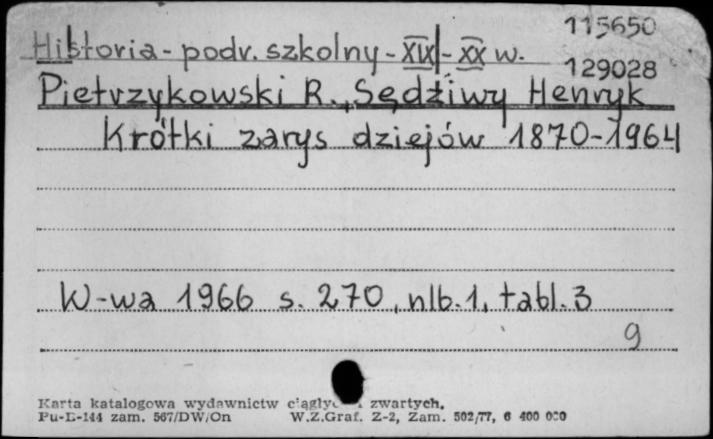 115650
Historia - podr. szkolny - XIX - XX w.
129028
Pietrzykowski R., Sędziwy Henryk
Krótki zarys dziejów 1870-1964
W-wa 1966 s. 270, nlb. 1, tabl. 3
9
Karta katalogowa wydawnictw zwartych.
Pu-E-144 zam. 567/DW/On W.Z.Graf. Z-2, Zam. 502/77, 6 400 000